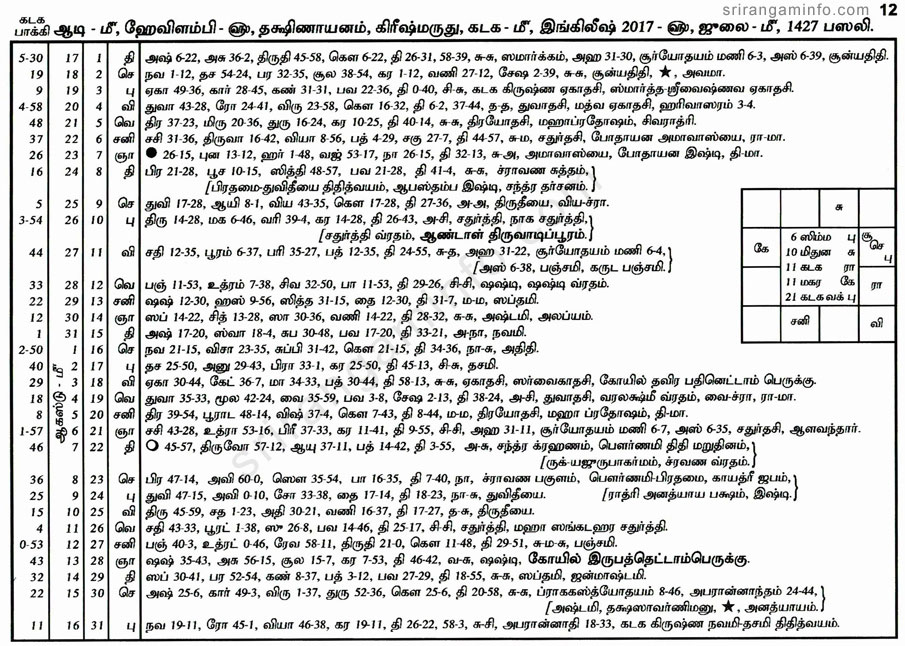 srirangaminfo.com 12
கடக பாக்கி ஆடி - மீ, ஹேவிளம்பி - ஸு, தக்ஷிணாயனம், கிரீஷ்மருது, கடக - மீ, இங்கிலீஷ் 2017 - ஸு, ஜுலை - மீ, 1427 பஸலி.
5-30 17 1 தி அஷ் 6-22, அசு 36-2, திருதி 45-58, கௌ 6-22, தி 26-31, 58-39, சு-சு, ஸமார்க்கம், அஹ 31-30, சூர்யோதயம் மணி 6-3, அஸ் 6-39, சூன்யதிதி.
19 18 2 செ நவ 1-12, தச 54-24, பர 32-35, சூல 38-54, கர 1-12, வணி 27-12, சேஷ 2-39, சு-சு, சூன்யதிதி, ★, அவமா.
9 19 3 பு ஏகா 49-36, கார் 28-45, கண் 31-31, பவ 22-36, தி 0-40, சி-சு, கடக கிருஷ்ண ஏகாதசி, ஸ்மார்த்த-ஸ்ரீவைஷ்ணவ ஏகாதசி.
4-58 20 4 வி துவா 43-28, ரோ 24-41, விரு 23-58, கௌ 16-32, தி 6-2, 37-44, த-த, துவாதசி, மத்வ ஏகாதசி, ஹரிவாஸரம் 3-4.
48 21 5 வெ திர 37-23, மிரு 20-36, துரு 16-24, கர 10-25, தி 40-14, சு-சு, திரயோதசி, மஹாப்ரதோஷம், சிவராத்ரி.
37 22 6 சனி சசி 31-36, திருவா 16-42, வியா 8-56, பத் 4-29, சகு 27-7, தி 44-57, சு-ம, சதுர்தசி, போதாயன அமாவாஸ்யை, ரா-மா.
26 23 7 ஞா ● 26-15, புன 13-12, ஹர் 1-48, வஜ் 53-17, நா 26-15, தி 32-13, சு-அ, அமாவாஸ்யை, போதாயன இஷ்டி, தி-மா.
16 24 8 தி பிர 21-28, பூச 10-15, ஸித்தி 48-57, பவ 21-28, தி 41-4, சு-சு, ச்ராவண சுத்தம்,
[பிரதமை-துவிதீயை திதித்வயம், ஆபஸ்தம்ப இஷ்டி, சந்த்ர தர்சனம்.
5 25 9 செ துவி 17-28, ஆயி 8-1, விய 43-35, கௌ 17-28, தி 27-36, அ-அ, திருதீயை, விய-ச்ரா.
3-54 26 10 பு திரு 14-28, மக 6-46, வரி 39-4, கர 14-28, தி 26-43, அ-சி, சதுர்த்தி, நாக சதுர்த்தி,
[சதுர்த்தி வ்ரதம், ஆண்டாள் திருவாடிப்பூரம்.
44 27 11 வி சதி 12-35, பூரம் 6-37, பரி 35-27, பத் 12-35, தி 24-55, சு-த, அஹ 31-22, சூர்யோதயம் மணி 6-4,
[அஸ் 6-38, பஞ்சமி, கருட பஞ்சமி.
33 28 12 வெ பஞ் 11-53, உத்ரம் 7-38, சிவ 32-50, பா 11-53, தி 29-26, சி-சி, ஷஷ்டி, ஷஷ்டி வ்ரதம்.
22 29 13 சனி ஷஷ் 12-30, ஹஸ் 9-56, ஸித்த 31-15, தை 12-30, தி 31-7, ம-ம, ஸப்தமி.
12 30 14 ஞா ஸப் 14-22, சித் 13-28, ஸா 30-36, வணி 14-22, தி 28-32, சு-சு, அஷ்டமி, அலப்யம்.
1 31 15 தி அஷ் 17-20, ஸ்வா 18-4, சுப 30-48, பவ 17-20, தி 33-21, அ-நா, நவமி.
2-50 1 16 செ நவ 21-15, விசா 23-35, சுப்பி 31-42, கௌ 21-15, தி 34-36, நா-சு, அதிதி.
40 2 17 பு தச 25-50, அனு 29-43, பிரா 33-1, கர 25-50, தி 45-13, சி-சு, தசமி.
29 3 18 வி ஏகா 30-44, கேட் 36-7, மா 34-33, பத் 30-44, தி 58-13, சு-சு, ஏகாதசி, ஸர்வைகாதசி, கோயில் தவிர பதினெட்டாம் பெருக்கு.
18 4 19 வெ துவா 35-33, மூல 42-24, வை 35-59, பவ 3-8, சேஷ 2-13, தி 38-24, அ-சி, துவாதசி, வரலக்ஷ்மீ வ்ரதம், வை-ச்ரா, ரா-மா.
8 5 20 சனி திர 39-54, பூராட 48-14, விஷ் 37-4, கௌ 7-43, தி 8-44, ம-ம, திரயோதசி, மஹா ப்ரதோஷம், தி-மா.
1-57 6 21 ஞா சசி 43-28, உத்ரா 53-16, பிரீ 37-33, கர 11-41, தி 9-55, சி-சி, அஹ 31-11, சூர்யோதயம் மணி 6-7, அஸ் 6-35, சதுர்தசி, ஆளவந்தார்.
46 7 22 தி ○ 45-57, திருவோ 57-12, ஆயு 37-11, பத் 14-42, தி 3-55, அ-சு, சந்த்ர க்ரஹணம், பௌர்ணமி திதி மறுதினம்,
[ருக்-யஜுருபாகர்மம், ச்ரவண வ்ரதம்.
36 8 23 செ பிர 47-14, அவி 60-0, ஸௌ 35-54, பா 16-35, தி 7-40, நா, ச்ராவண பகுளம், பௌர்ணமி-பிரதமை, காயத்ரீ ஜபம்,
25 9 24 பு துவி 47-15, அவி 0-10, சோ 33-38, தை 17-14, தி 18-23, நா-சு, துவிதீயை. [ராத்ரி அனத்யாய பக்ஷம், இஷ்டி.
15 10 25 வி திரு 45-59, சத 1-23, அதி 30-21, வணி 16-37, தி 17-27, த-சு, திருதீயை.
4 11 26 வெ சதி 43-33, பூரட் 1-38, ஸு 26-8, பவ 14-46, தி 25-17, சி-சி, சதுர்த்தி, மஹா ஸங்கடஹர சதுர்த்தி.
0-53 12 27 சனி பஞ் 40-3, உத்ரட் 0-46, ரேவ 58-11, திருதி 21-0, கௌ 11-48, தி 29-51, சு-ம-சு, பஞ்சமி.
43 13 28 ஞா ஷஷ் 35-43, அசு 56-15, சூல 15-7, கர 7-53, தி 46-42, வ-சு, ஷஷ்டி, கோயில் இருபத்தெட்டாம்பெருக்கு.
32 14 29 தி ஸப் 30-41, பர 52-54, கண் 8-37, பத் 3-12, பவ 27-29, தி 18-55, சு-சு, ஸப்தமி, ஜன்மாஷ்டமி.
22 15 30 செ அஷ் 25-6, கார் 49-3, விரு 1-37, துரு 52-36, கௌ 25-6, தி 20-58, சு-சு, ப்ராககஸ்த்யோதயம் 8-46, அபரான்னாந்தம் 24-44,
[அஷ்டமி, தக்ஷஸாவர்ணிமனு, ★, அனத்யாயம்.
11 16 31 பு நவ 19-11, ரோ 45-1, வியா 46-38, கர 19-11, தி 26-22, 58-3, சு-சி, அபரான்னாதி 18-33, கடக கிருஷ்ண நவமி-தசமி திதித்வயம்.
ஆகஸ்டு - மீ
சு
கே
6 ஸிம்ம பு
10 மிதுன சு
11 கடக ரா
11 மகர கே
21 கடக வக் பு
சூ செ பு
ரா
சனி
வி